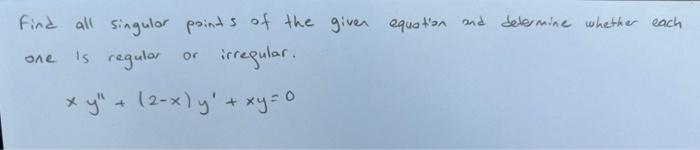 Find all singular points of the given equation and determine whether each
one is regular or irregular.
x y" + (2-x) y' + xy = 0